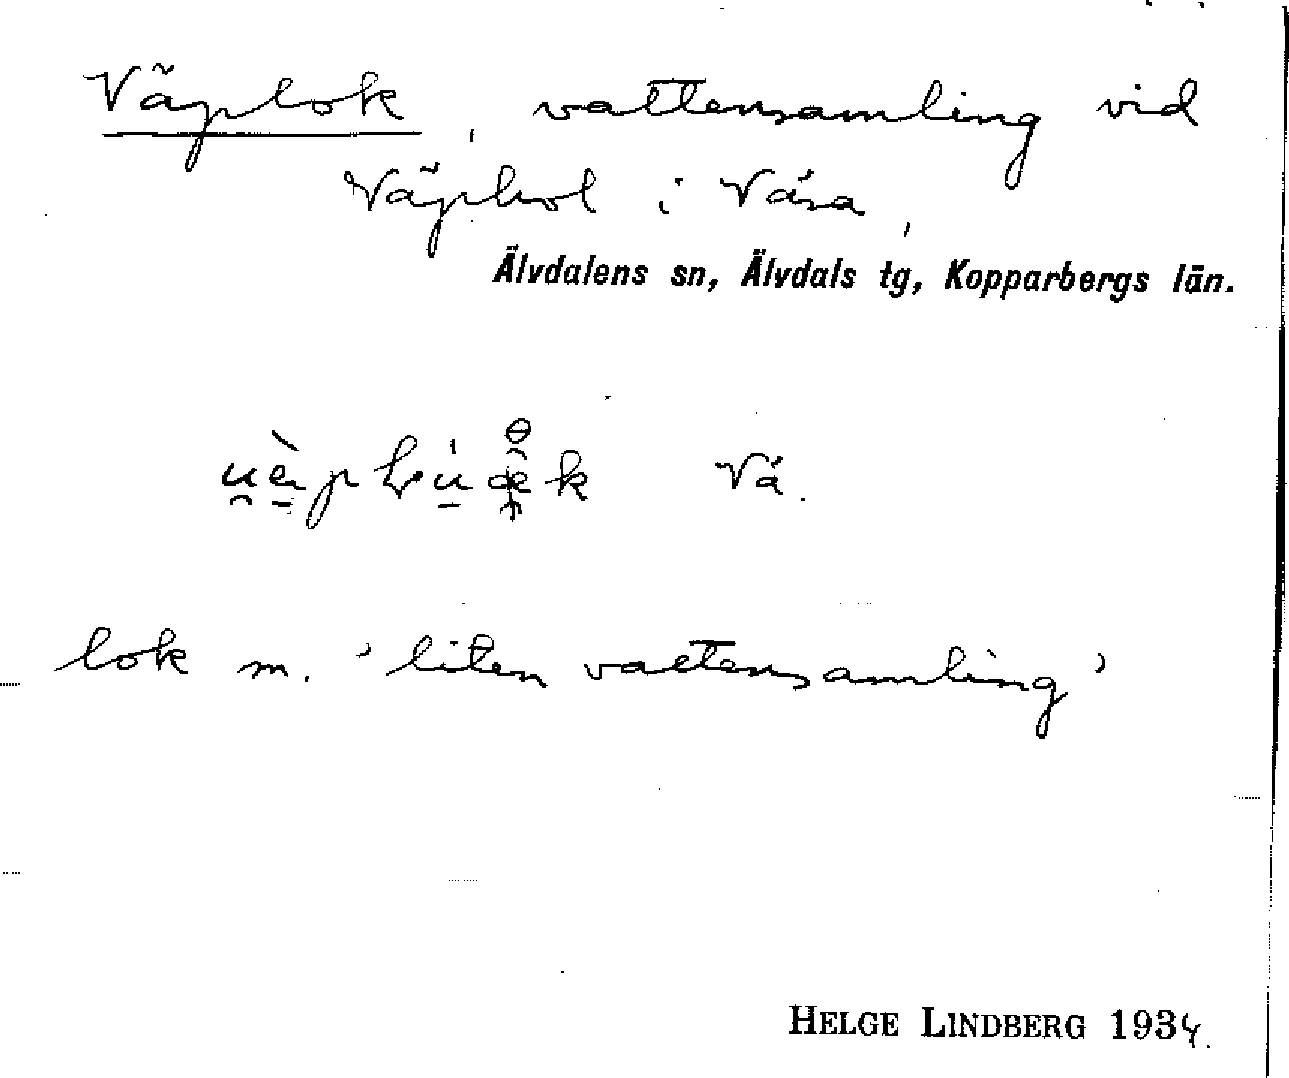 Väplok, vattensamling vid
Väphol i Våsa,
Älvdalens sn, Älvdals tg, Kopparbergs län.
Vå.
lok m. 'liten vattensamling'
HELGE LINDBERG 1934.